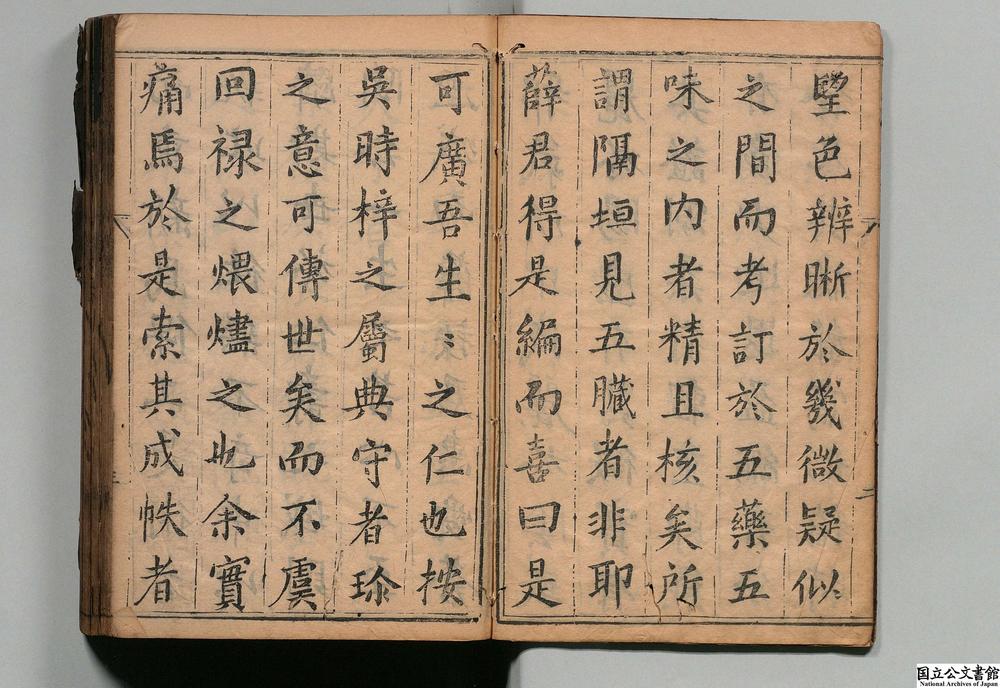 朢色辨晰於幾微疑似
之間而考訂於五藥五
味之内者精且核矣所
謂隔垣見五臟者非耶
薛君得是編而喜曰是
可廣吾生〻之仁也按
吳時梓之屬典守者珎
之意可傳世矣而不虞
回禄之煨燼之也余實
痛焉於是索其成帙者
二
三
国立公文書館
National Archives of Japan